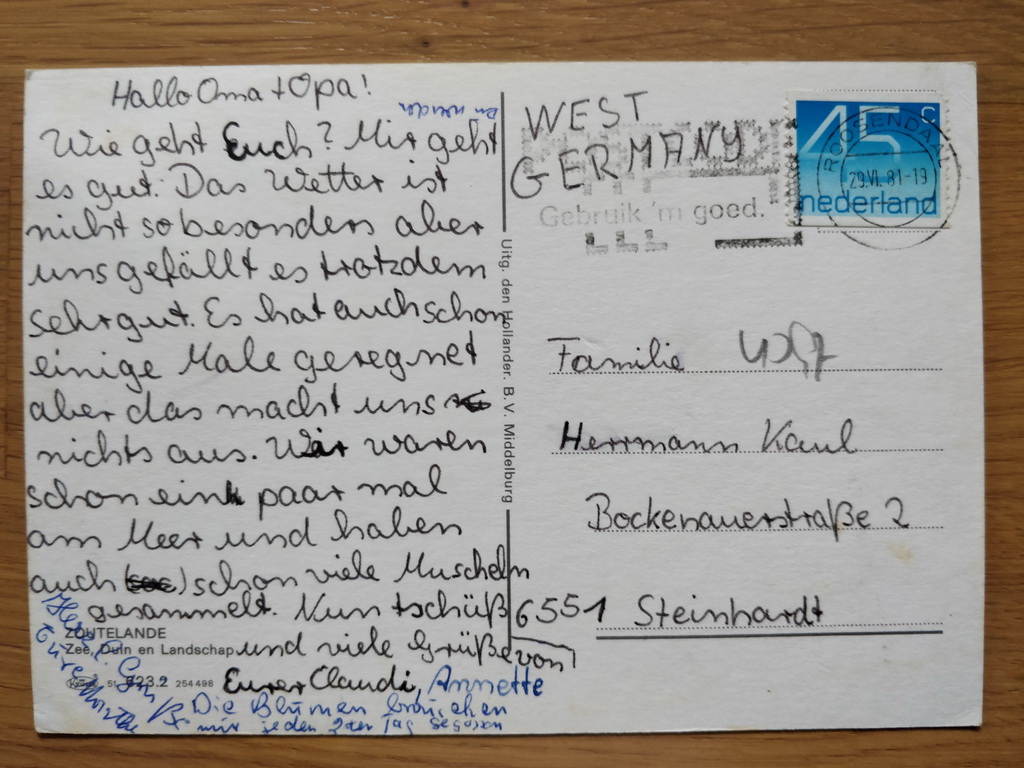 Hallo Oma + Opa!
Wie geht Euch? Mir geht
es gut. Das Wetter ist
nicht so besonders aber
uns gefällt es trotzdem
sehr gut. Es hat auch schon
einige Male geregnet
aber das macht uns
nichts aus. Wir waren
schon ein paar mal
am Meer und haben
auch schon viele Muscheln
gesammelt. Nun tschüß
und viele Grüße von
Eurer Claudi, Annette
Die Blumen brauchen
nur jeden 2ten Tag gegossen
werden
Herzl. Gruß
Eure
ZOUTELANDE
Zee, Duin en Landschap
51 623.2 254498
Uitg. den Hollander. B.V. Middelburg
WEST
GERMANY
Gebruik 'm goed.
45 c
nederland
ROOSENDAAL
29.VI.81-19
Familie
Herrmann Kaul
Bockenauerstraße 2
6551 Steinhardt